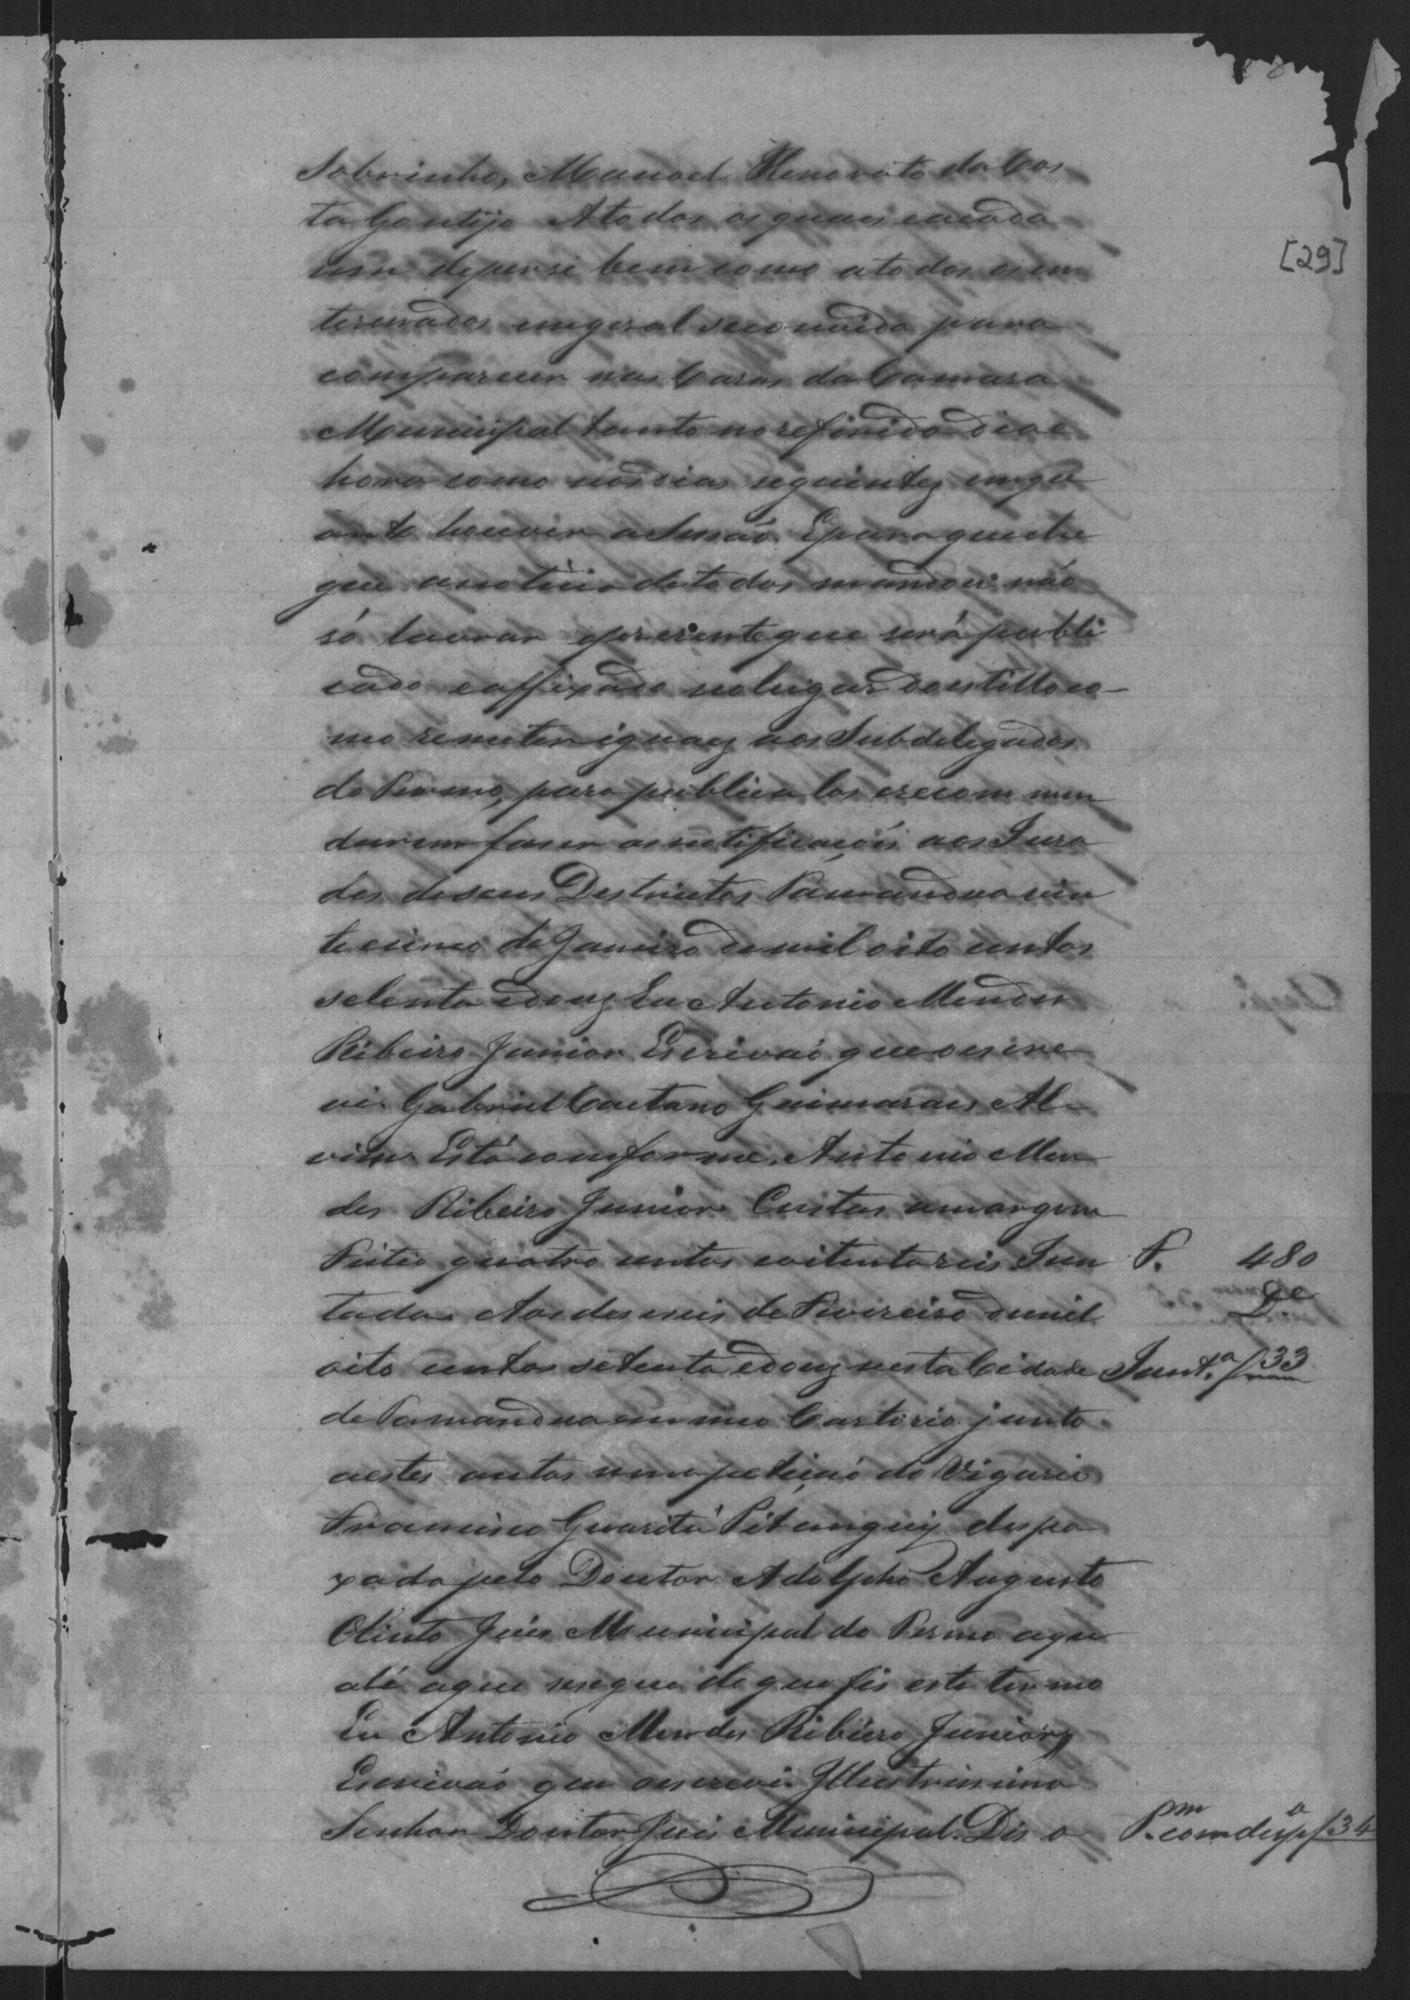 [29]
Sobrinho, Manoel Honorato da Cos
ta Gontijo Atodos os quaes ecada
um deperse bem como atodos os in
teressados emgeral seconvida para
comparecer nas Casas da Camara
Municipal tanto no refirido dia e
hora como nosdias seguintes emqu
anto houver a Secão. Eparaqueche
gue anoticia detodos mandou não
só lavrar opresente que será publi
cado eaffixado nolugar doestillo co-
mo remeter iguaes aos Subdelegados
do Termo, para publica los erecommen
darem faser asnotificaçois aos Jura
dos deseus Destrictos Tamandua vin
te cinco de Janeiro de mil oito centos
setenta edous Eu Antonio Mendes
Ribeiro Junior Escrivão que oescre
vi Gabriel Caetano Guimarais Al
vim Está comforme. Antonio Men
des Ribeiro Junior Custas amargem
Feitio quatro centos eoitenta reis Jun
P. 480
De
tada Aos deseseis de Fivireiro demil
oito centos setenta edous nesta Cidade
Junt.ª f 33
de Tamandua em meo Cartorio junto
aestes autos uma petição do Vigario
Francisco Guarita Pitanguy despa
xada pelo Doutor Adolpho Augusto
Olinto Juis Municipal do Termo aqu
al é aque sesegue de que fis este termo
Eu Antonio Mendes Ribeiro Junior
Escrivão que oescrevi Illustrissimo
Senhor Doutor Juis Municipal. Dis o
P.m com desp.ª f 34